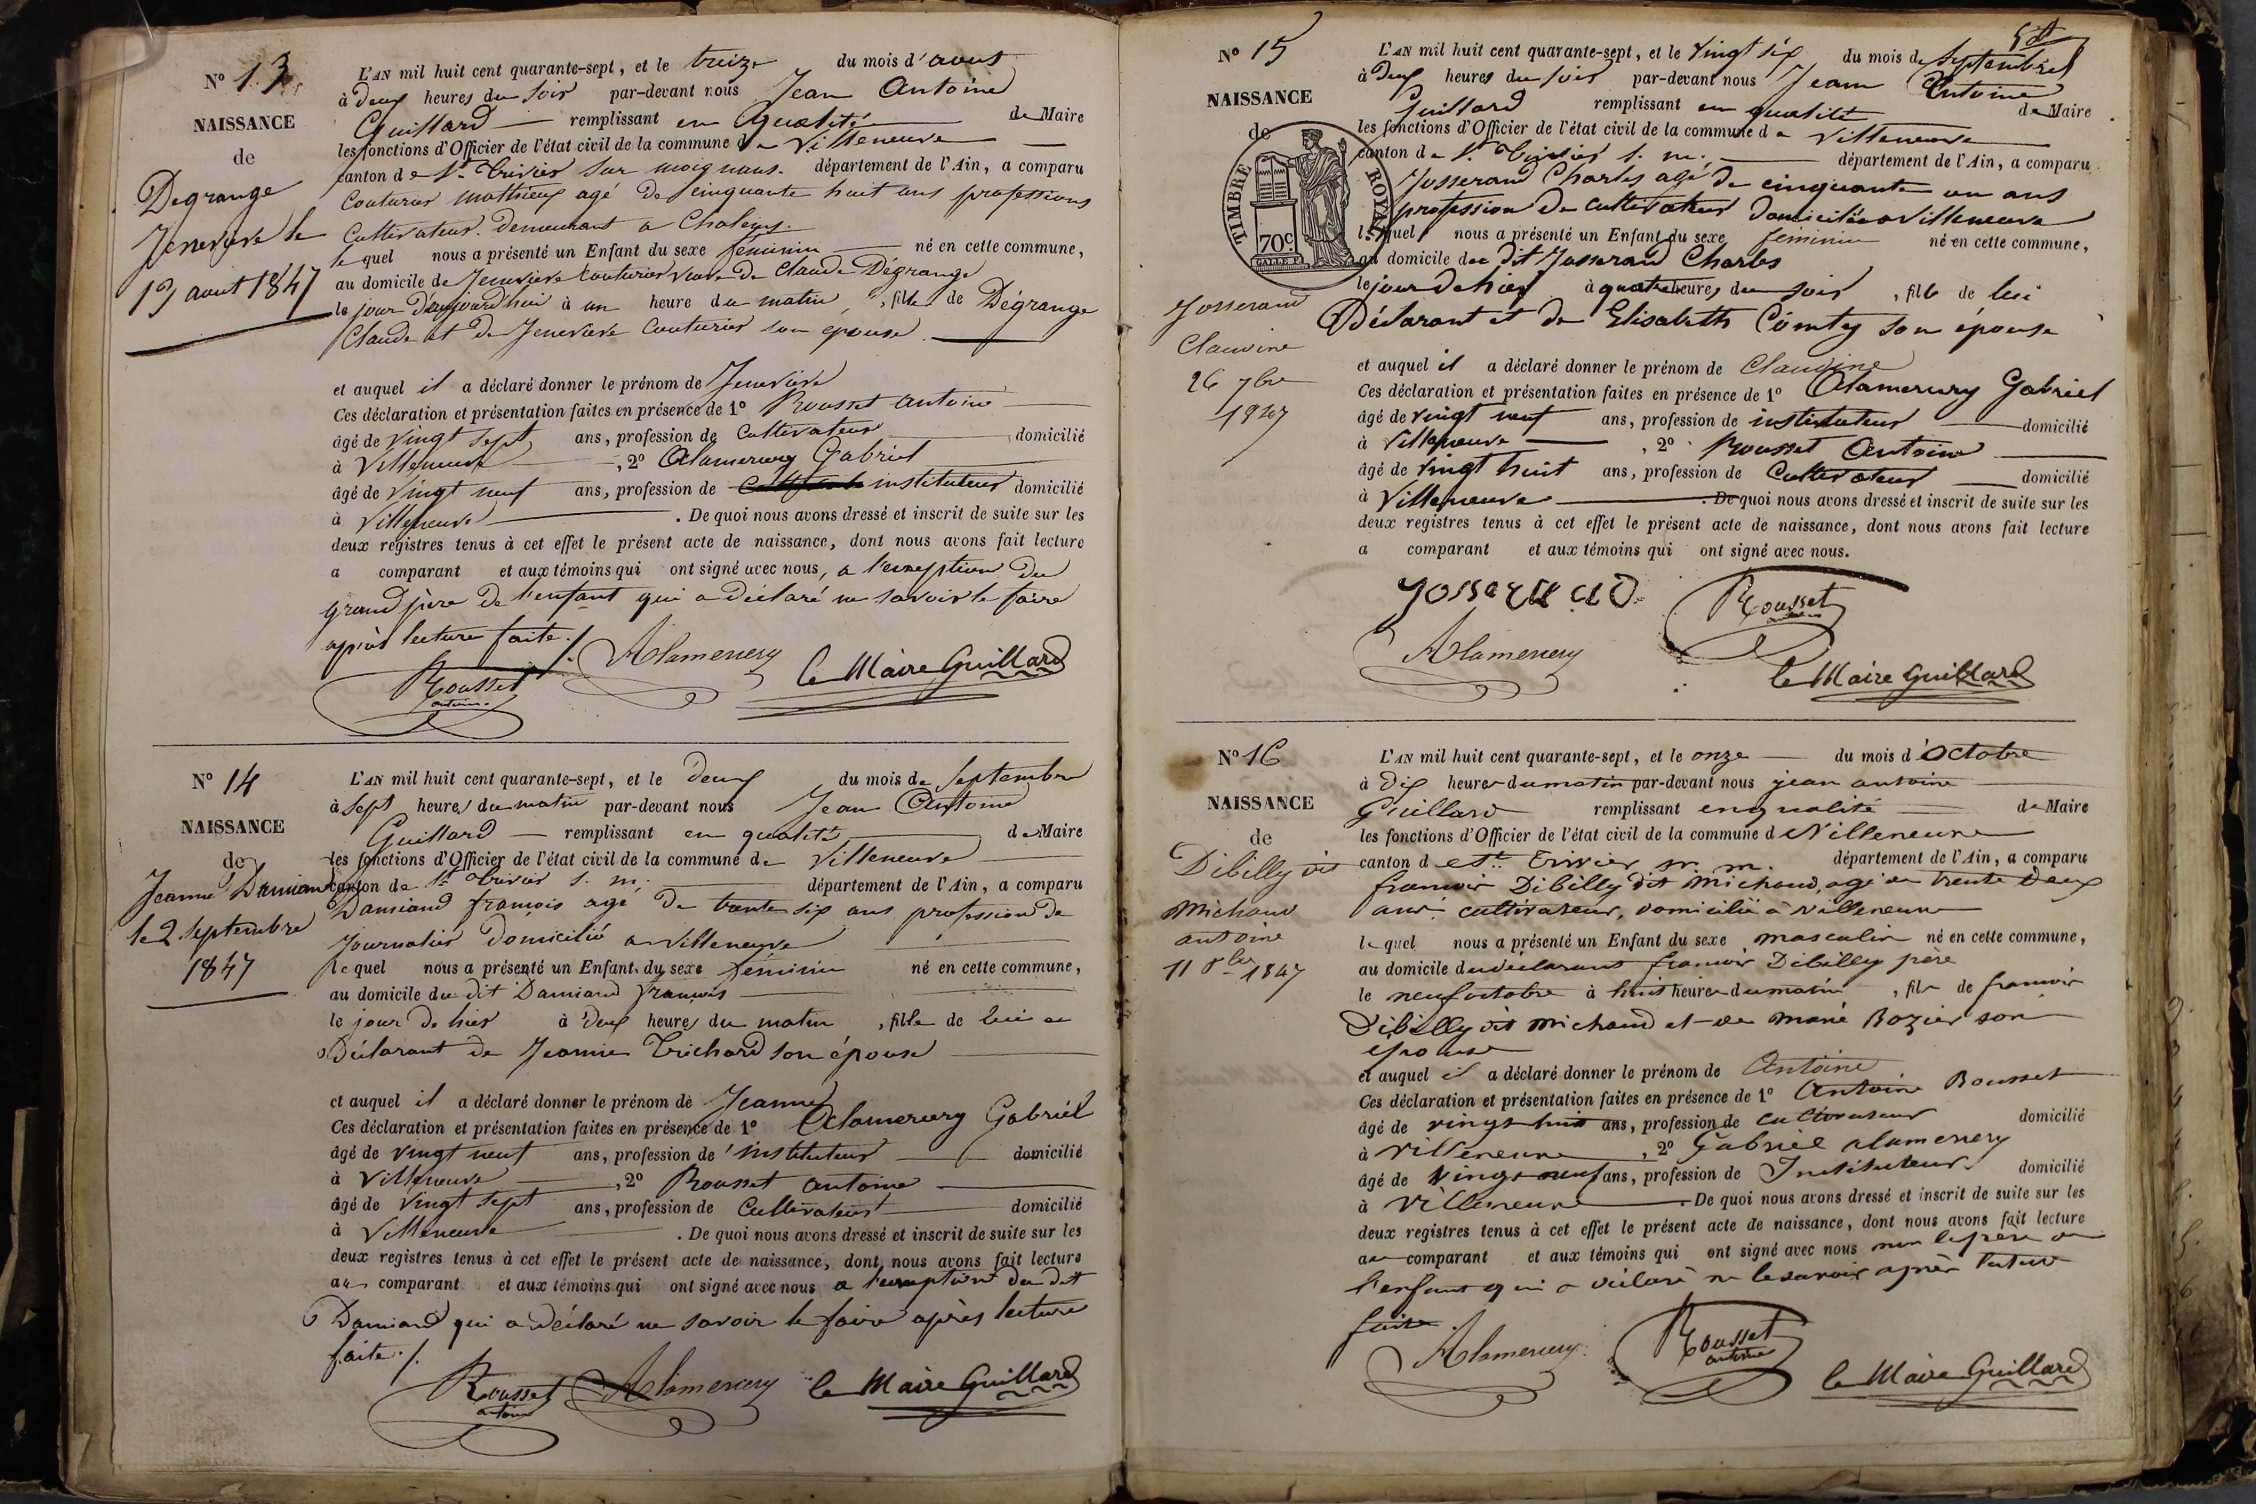 N° 13
NAISSANCE
de
Degrange
Jenevieve le
13 aout 1847
L'AN mil huit cent quarante-sept, et le treize du mois d'aout
à deux heures du soir par-devant nous Jean Antoine
Guillard remplissant en qualité de Maire
les fonctions d'Officier de l'état civil de la commune de Villeneuve
canton de St Trivier sur moignans. département de l'Ain, a comparu
Couturier mathieux agé de cinquante huit ans professions
Cultivateur. Demeurant a Chaleins.
le quel nous a présenté un Enfant du sexe féminin né en cette commune,
au domicile de Jenevieve Couturier veuve de Claude Dégrange
le jour d'aujourd'hui à un heure du matin, fille de Dégrange
Claude et de Jenevieve Couturier son épouse
et auquel il a déclaré donner le prénom de Jenevieve
Ces déclaration et présentation faites en présence de 1° Rousset antoine
âgé de vingt sept ans, profession de Cultivateur domicilié
à Villeneuve, 2° Alamercery Gabriel
âgé de vingt neuf ans, profession de instituteur domicilié
à Villeneuve. De quoi nous avons dressé et inscrit de suite sur les
deux registres tenus à cet effet le présent acte de naissance, dont nous avons fait lecture
a comparant et aux témoins qui ont signé avec nous, a l'exception du
grand père de l'enfant qui a déclaré ne savoir le faire
après lecture faite./.
Rousset antoine Alamercery le Maire Guillard
N° 14
NAISSANCE
de
Jeanne Damiand
le 2 septembre
1847
L'AN mil huit cent quarante-sept, et le deux du mois de Septembre
à sept heures du matin par-devant nous Jean Antoine
Guillard remplissant en qualité de Maire
les fonctions d'Officier de l'état civil de la commune de Villeneuve
canton de St Trivier s. m. département de l'Ain, a comparu
Damiand françois agé de trente six ans profession de
Journalier domicilié a Villeneuve
le quel nous a présenté un Enfant du sexe féminin né en cette commune,
au domicile du dit Damiand françois
le jour de hier à deux heures du matin, fille de lui
Déclarant de Jeanne Trichard son épouse
et auquel il a déclaré donner le prénom de Jeanne
Ces déclaration et présentation faites en présence de 1° Alamercery Gabriel
âgé de vingt neuf ans, profession de instituteur domicilié
à Villeneuve, 2° Rousset antoine
âgé de vingt sept ans, profession de Cultivateur domicilié
à Villeneuve. De quoi nous avons dressé et inscrit de suite sur les
deux registres tenus à cet effet le présent acte de naissance, dont nous avons fait lecture
au comparant et aux témoins qui ont signé avec nous a l'exception du dit
Damiand qui a déclaré ne savoir le faire après lecture
faite./.
Rousset antoine Alamercery le Maire Guillard
N° 15
NAISSANCE
de
TIMBRE ROYAL
70c.
Josserand
Claudine
26 7bre
1847
L'AN mil huit cent quarante-sept, et le vingt six du mois de Septembre
à deux heures du soir par-devant nous Jean Antoine
Guillard remplissant en qualité de Maire
les fonctions d'Officier de l'état civil de la commune de Villeneuve
canton de St Trivier s. m. département de l'Ain, a comparu
Josserand Charles agé de cinquante un ans
profession de cultivateur domicilié a Villeneuve
lequel nous a présenté un Enfant du sexe féminin né en cette commune,
au domicile du dit Josserand Charles
le jour de hier à quatre heures du soir, fille de lui
Déclarant et de Elisabeth Comty son épouse
et auquel il a déclaré donner le prénom de Claudine
Ces déclaration et présentation faites en présence de 1° Alamercery Gabriel
âgé de vingt neuf ans, profession de instituteur domicilié
à Villeneuve, 2° Rousset Antoine
âgé de vingt huit ans, profession de Cultivateur domicilié
à Villeneuve. De quoi nous avons dressé et inscrit de suite sur les
deux registres tenus à cet effet le présent acte de naissance, dont nous avons fait lecture
a comparant et aux témoins qui ont signé avec nous.
Josserand Rousset antoine
Alamercery le Maire Guillard
N° 16
NAISSANCE
de
Dibilly dit
Michaud
antoine
11 8bre 1847
L'AN mil huit cent quarante-sept, et le onze du mois d'Octobre
à dix heures du matin par-devant nous jean antoine
Guillard remplissant en qualité de Maire
les fonctions d'Officier de l'état civil de la commune de Villeneuve
canton de St. Trivier s. m. département de l'Ain, a comparu
francois Dibilly dit Michaud, agé de trente deux
ans. cultivateur, domicilié à villeneuve
le quel nous a présenté un Enfant du sexe masculin né en cette commune,
au domicile du déclarant francois Dibilly père
le neuf octobre à huit heures du matin, fils de francois
Dibilly dit Michaud et de marie Bozier son
epouse
et auquel il a déclaré donner le prénom de Antoine
Ces déclaration et présentation faites en présence de 1° Antoine Rousset
âgé de vingt huit ans, profession de cultivateur domicilié
à Villeneuve, 2° Gabriel Alamercery
âgé de vingt neuf ans, profession de Instituteur domicilié
à Villeneuve. De quoi nous avons dressé et inscrit de suite sur les
deux registres tenus à cet effet le présent acte de naissance, dont nous avons fait lecture
au comparant et aux témoins qui ont signé avec nous non le père de
l'enfant qui a déclaré ne le savoir après lecture
faite.
Alamercery Rousset antoine le Maire Guillard